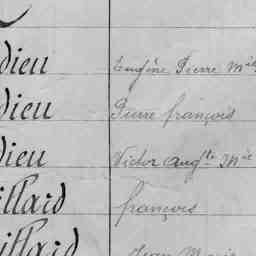 dieu Eugène Pierre Mie
dieu Pierre françois
dieu Victor Augte Mie
illard françois
illard Jean Marie